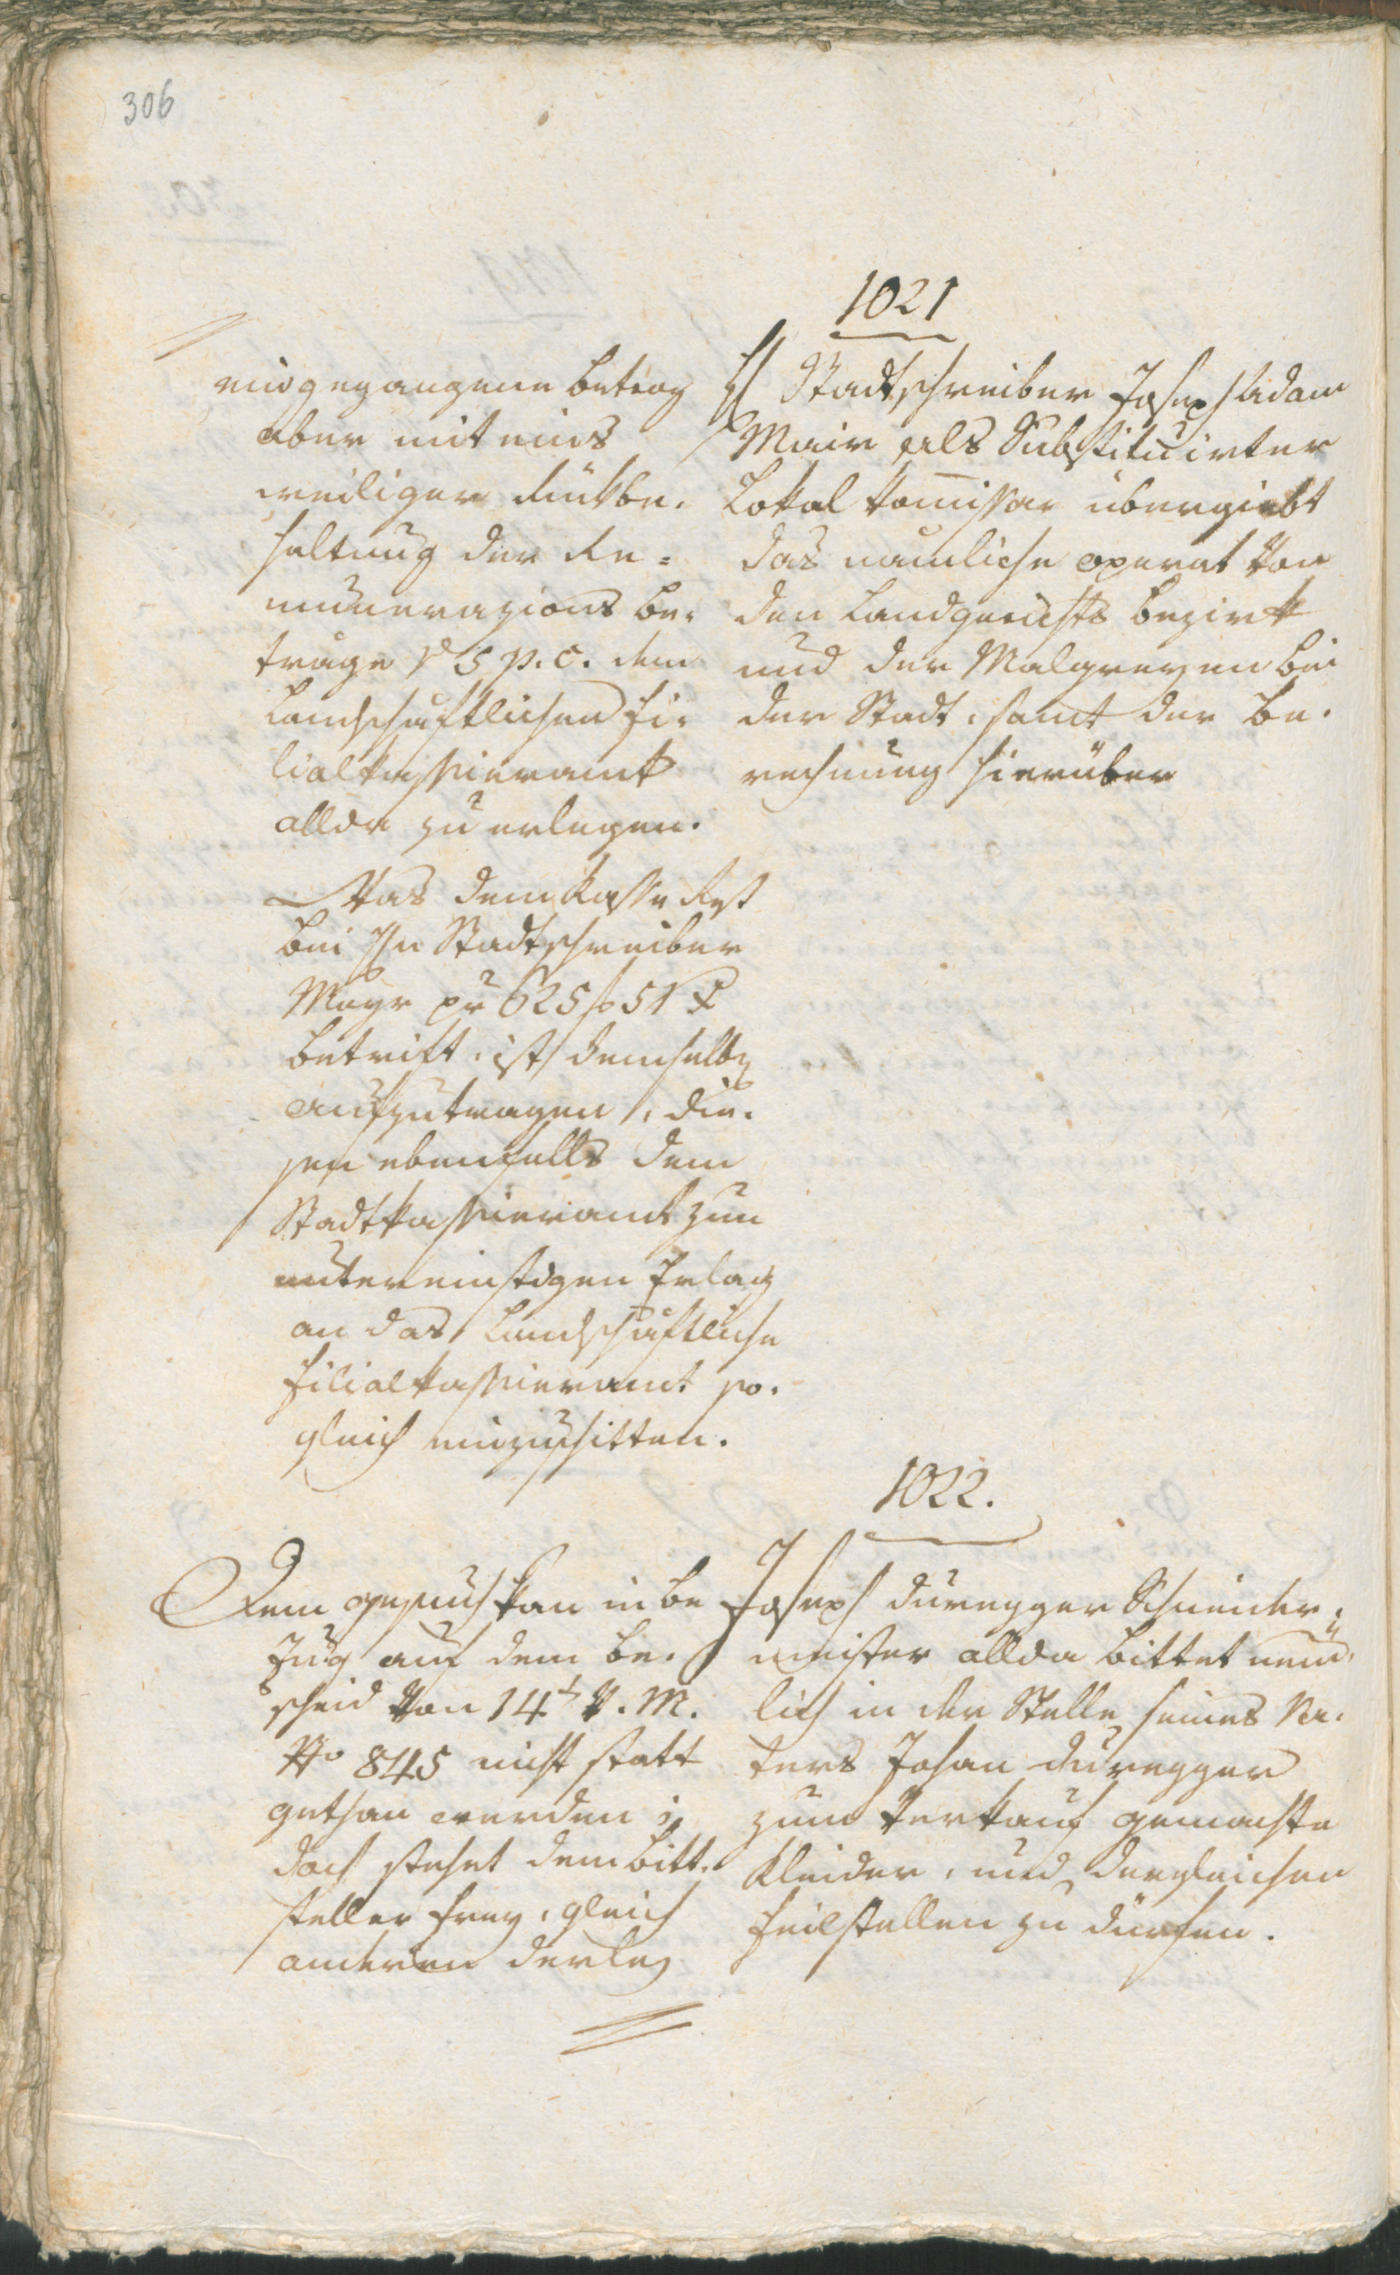 306
1021
eingegangene Betrag
aber mit eins
weiliger Rükbe,
haltung der Re=
munerazions be,
träge 5 p. c. dem
Landschaftlichen Fi,
lialkassieramt
allda zu erlegen.
Was dem Kasse Rest
bei Hn Stadtschreiber
Mayr pr 625 f 51 x
betrift, ist demselbn
aufzutragen, die,
sen ebenfalls dem
Stadtkassieramt zum
untereinstigen Erlag
an das Landschaftliche
Filialkassieramt so,
gleich einzuschikken.
H Stadtschreiber Joseph Adam
Mair als Substituirter
Lokal Komissar übergiebt
das nämliche operat von
den Landgerichts bezirk
und der Malgreyen bei
der Stadt, samt der Be,
rechnung hierüber
1022.
Dem gesuch kan in be
zug auf dem be,
scheid von 14t v. M.
No 845 nicht statt
gethan werden;
doch stehet dem bitt,
steller frey, gleich
anderen derley
Joseph Duregger Schneider,
meister allda bittet nem̄,
lich in der Stelle seines Va,
ters Johan Duregger
zum Verkauf gemachte
Kleider, und dergleichen
feilstellen zu dürfen.